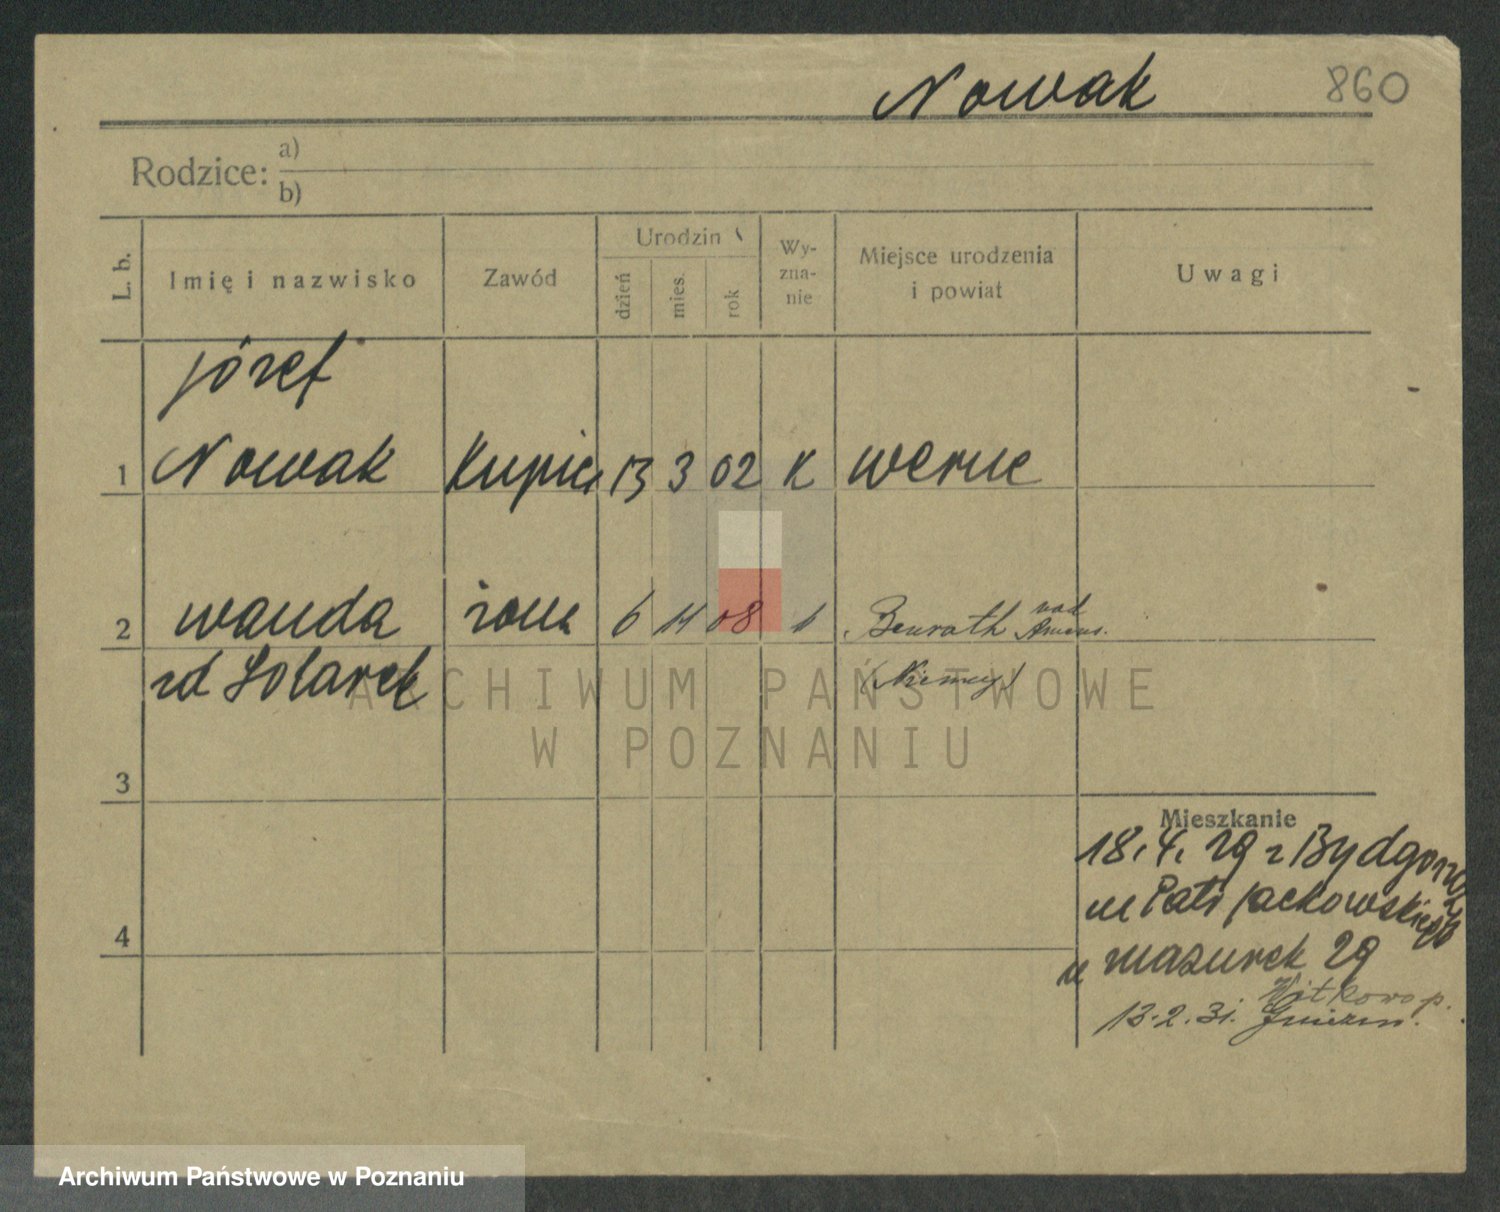 Nowak 860
Rodzice: a)
b)
L. b. Imię i nazwisko Zawód Urodzin Wy-zna-nie Miejsce urodzenia i powiat Uwagi
dzień mies. rok
józef
1 Nowak Kupiec 13 3 02 K Werne
2 wanda żona 6 11 08 Benrath nad
zd Solarek (Niemcy)
3
Mieszkanie
18.4.29 z Bydgoszcz
ul Patr Jackowskiego
4
u mazurek 29
Witkowo p.
13.2.31. Gniezn.
ARCHIWUM PAŃSTWOWE
W POZNANIU
Archiwum Państwowe w Poznaniu